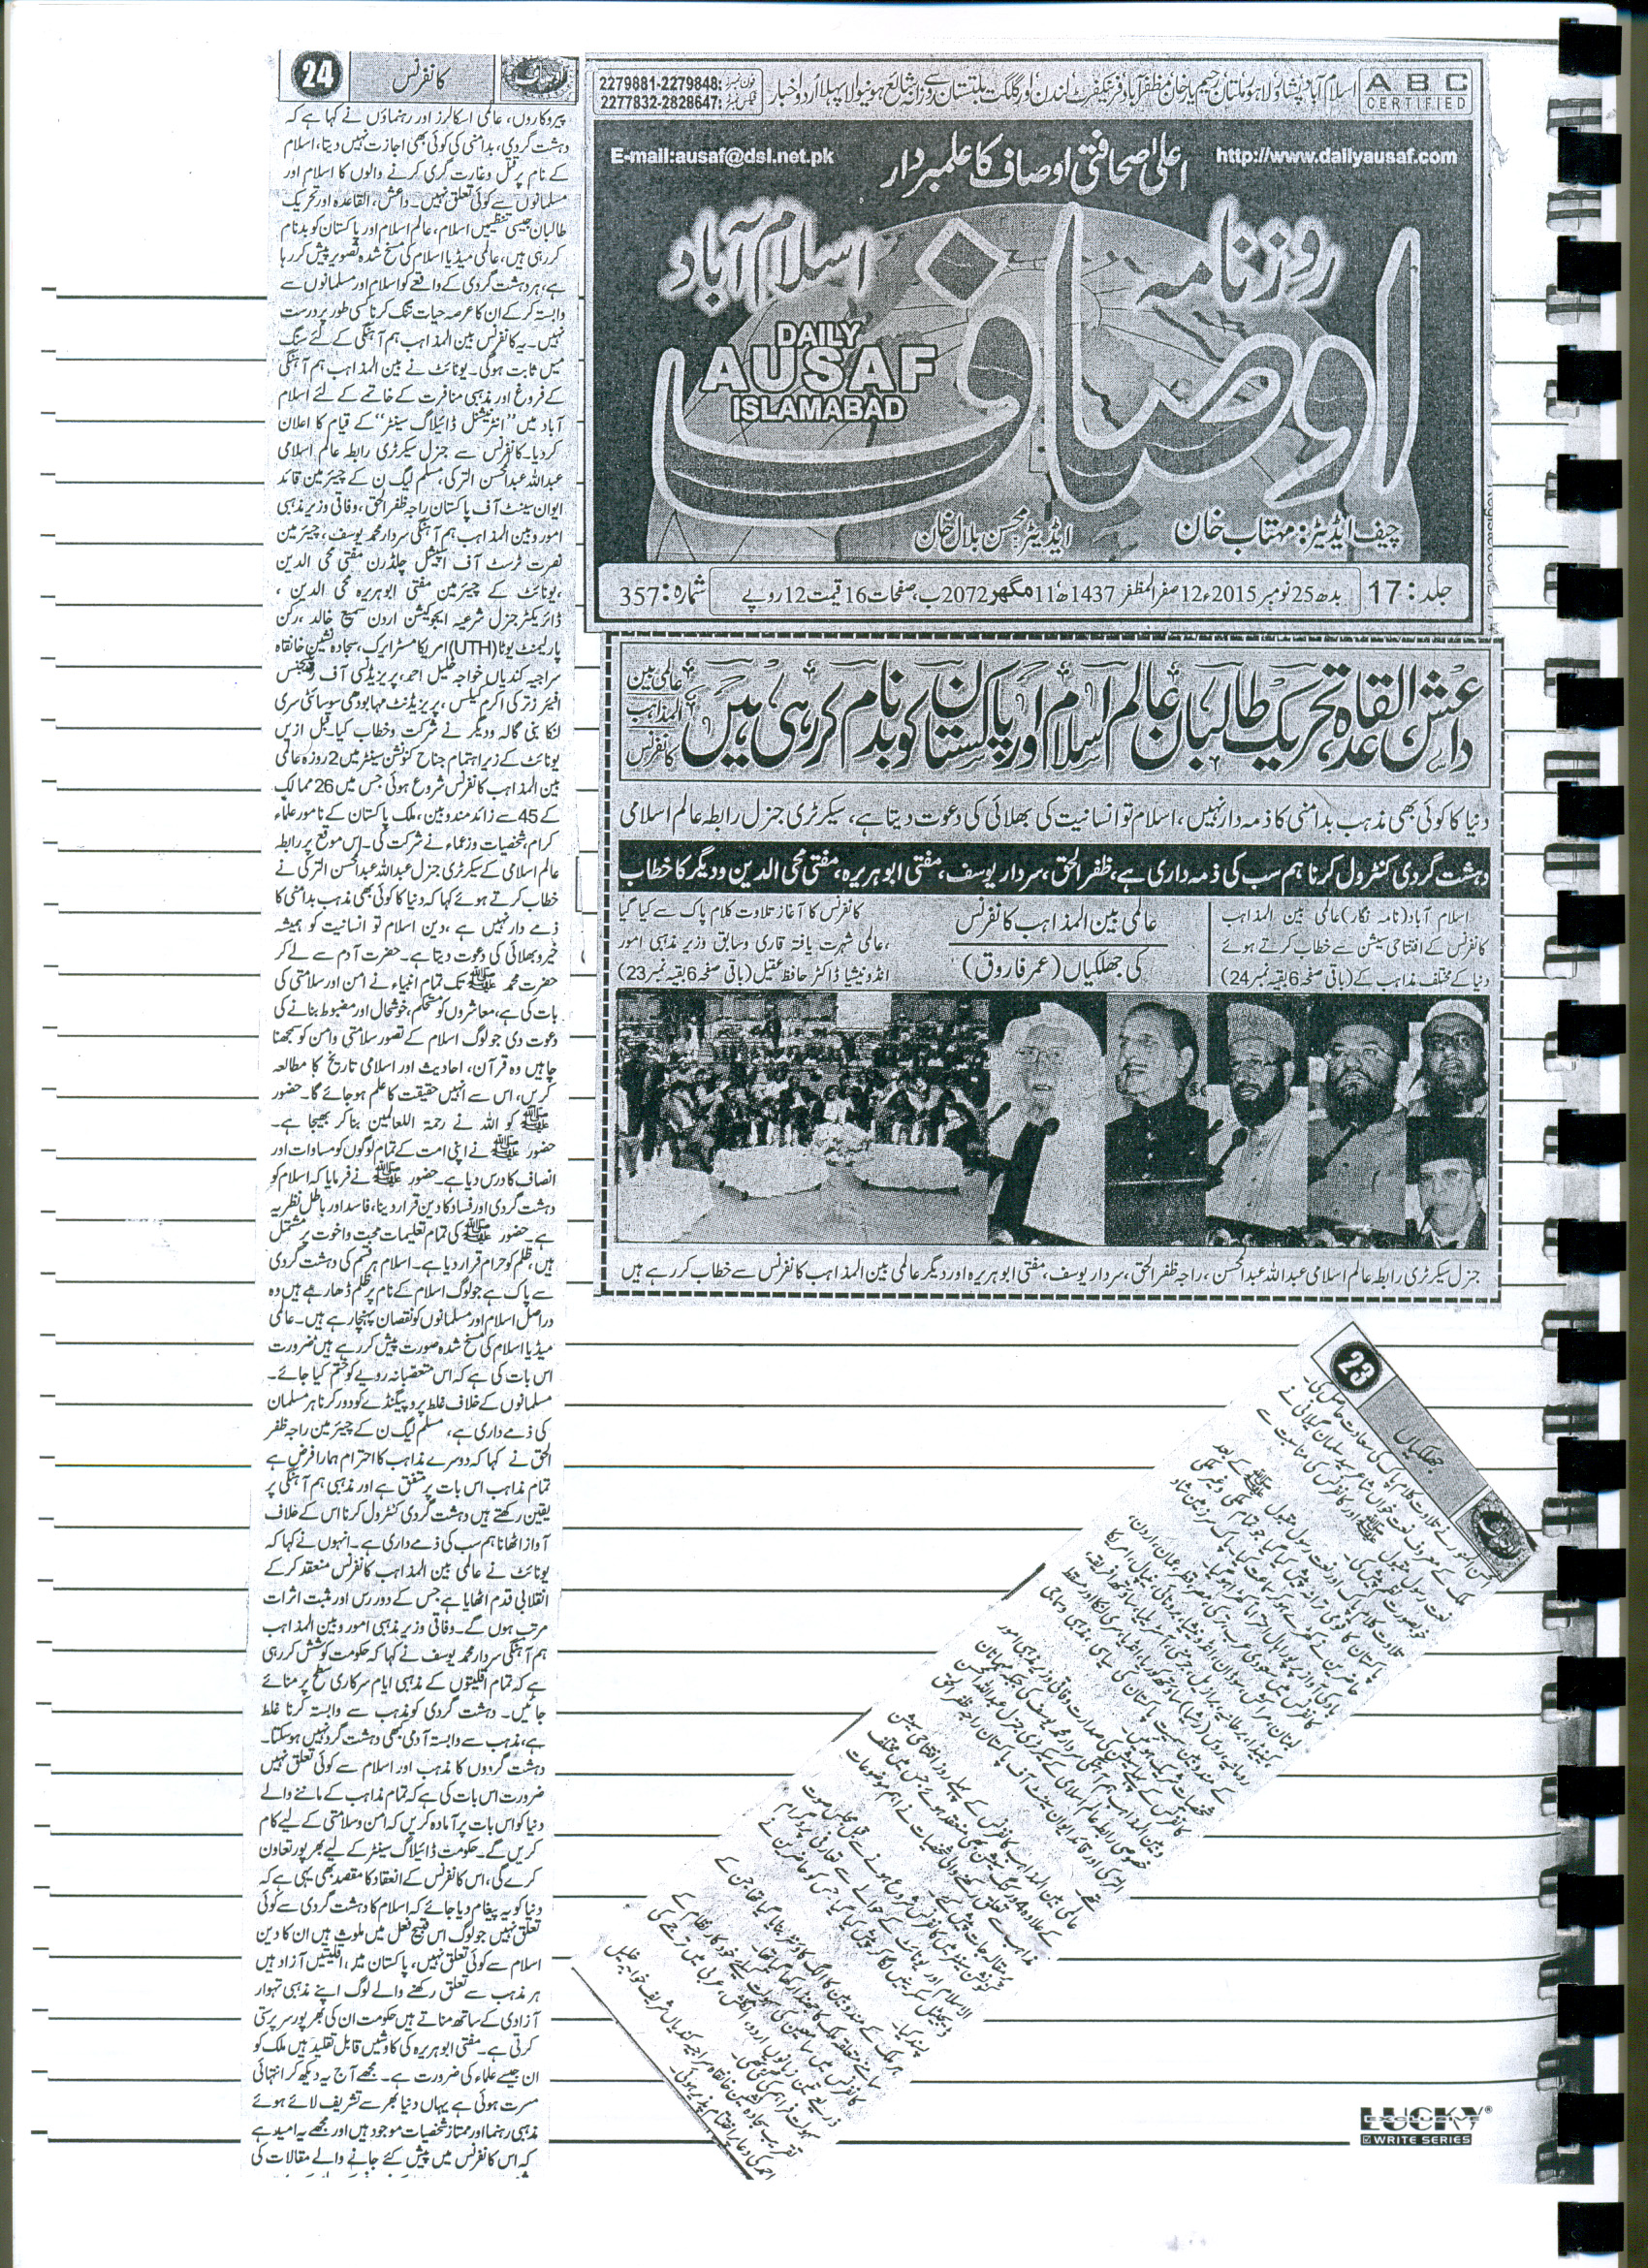 اسلام آباد، پشاور، لاہور، ملتان، رحیم یار خان، مظفر آباد، فرینکفرٹ، لندن اور گلگت بلتستان سے روزانہ شائع ہونیوالا پہلا اُردو اخبار
ABC
CERTIFIED
فون نمبرز: 2279881-2279848
فیکس نمبرز: 2277832-2828647
http://www.dailyausaf.com
اعلیٰ صحافتی اوصاف کا علمبردار
E-mail:ausaf@dsl.net.pk
روزنامہ
اوصاف
اسلام آباد
DAILY
AUSAF
ISLAMABAD
چیف ایڈیٹر: مہتاب خان
ایڈیٹر محسن بلال خان
جلد: 17
بدھ 25 نومبر 2015ء 12 صفر المظفر 1437ھ 11 مگھر 2072 ب، صفحات 16 قیمت 12 روپے
شمارہ: 357
داعش القاعدہ، تحریک طالبان عالم اسلام اور پاکستان کو بدنام کر رہی ہیں
عالمی بین
المذاہب
کانفرنس
دنیا کا کوئی بھی مذہب بدامنی کا ذمہ دار نہیں، اسلام تو انسانیت کی بھلائی کی دعوت دیتا ہے، سیکرٹری جنرل رابطہ عالم اسلامی
دہشت گردی کنٹرول کرنا ہم سب کی ذمہ داری ہے، ظفر الحق، سردار یوسف، مفتی ابوہریرہ، مفتی محی الدین و دیگر کا خطاب
اسلام آباد (نامہ نگار) عالمی بین المذاہب
کانفرنس کے افتتاحی سیشن سے خطاب کرتے ہوئے
دنیا کے مختلف مذاہب کے (باقی صفحہ 6 بقیہ نمبر 24)
عالمی بین المذاہب کانفرنس
کی جھلکیاں (عمر فاروق)
کانفرنس کا آغاز تلاوت کلام پاک سے کیا گیا
،عالمی شہرت یافتہ قاری و سابق وزیر مذہبی امور
انڈونیشیا ڈاکٹر حافظ عقیل (باقی صفحہ 6 بقیہ نمبر 23)
جنرل سیکرٹری رابطہ عالم اسلامی عبداللہ عبدالمحسن، راجہ ظفر الحق، سردار یوسف، مفتی ابوہریرہ اور دیگر عالمی بین المذاہب کانفرنس سے خطاب کر رہے ہیں
اوصاف
کانفرنس
24
پیروکاروں، عالمی اسکالرز اور رہنماؤں نے کہا ہے کہ
دہشت گردی، بدامنی کی کوئی بھی اجازت نہیں دیتا، اسلام
کے نام پر قتل و غارت گری کرنے والوں کا اسلام اور
مسلمانوں سے کوئی تعلق نہیں۔ داعش، القاعدہ اور تحریک
طالبان جیسی تنظیمیں اسلام، عالم اسلام اور پاکستان کو بدنام
کر رہی ہیں، عالمی میڈیا اسلام کی مسخ شدہ تصویر پیش کر رہا
ہے، ہر دہشت گردی کے واقعے کو اسلام اور مسلمانوں سے
وابستہ کر کے ان کا عرصہ حیات تنگ کرنا کسی طور پر درست
نہیں۔ یہ کانفرنس بین المذاہب ہم آہنگی کے لئے سنگ
میں ثابت ہوگی۔ یونائٹ نے بین المذاہب ہم آہنگی
کے فروغ اور مذہبی منافرت کے خاتمے کے لئے اسلام
آباد میں ''انٹرنیشنل ڈائیلاگ سینٹر'' کے قیام کا اعلان
کر دیا۔ کانفرنس سے جنرل سیکرٹری رابطہ عالم اسلامی
عبداللہ عبدالمحسن الترکی، مسلم لیگ ن کے چیئرمین قائد
ایوان سینٹ آف پاکستان راجہ ظفر الحق، وفاقی وزیر مذہبی
امور و بین المذاہب ہم آہنگی سردار محمد یوسف، چیئرمین
نصرت ٹرسٹ آف اسپیشل چلڈرن مفتی محی الدین
،یونائٹ کے چیئرمین مفتی ابوہریرہ محی الدین ،
ڈائریکٹر جنرل شرعیہ ایجوکیشن اردن سمیع خالد ،رکن
پارلیمنٹ یوٹا (UTH) امریکا مسٹر ایرک، سجادہ نشین خانقاہ
سراجیہ کندیاں خواجہ خلیل احمد، پریزیڈنسی آف ریلیجنس
افیئرز ترکی اکرم کیلس ،پریزیڈنٹ مہابودھی سوسائٹی سری
لنکا بنی گالہ و دیگر نے شرکت و خطاب کیا۔ قبل ازیں
یونائٹ کے زیر اہتمام جناح کنونشن سینٹر میں 2 روزہ عالمی
بین المذاہب کانفرنس شروع ہوئی جس میں 26 ممالک
کے 45 سے زائد مندوبین، ملک پاکستان کے نامور علماء
کرام، شخصیات و زعماء نے شرکت کی۔ اس موقع پر رابطہ
عالم اسلامی کے سیکرٹری جنرل عبداللہ عبدالمحسن الترکی نے
خطاب کرتے ہوئے کہا کہ دنیا کا کوئی بھی مذہب بدامنی کا
ذمے دار نہیں ہے ،دین اسلام تو انسانیت کو ہمیشہ
خیر و بھلائی کی دعوت دیتا ہے۔ حضرت آدم سے لے کر
حضرت محمد ﷺ تک تمام انبیاء نے امن اور سلامتی کی
بات کی ہے، معاشروں کو مستحکم، خوشحال اور مضبوط بنانے کی
دعوت دی جو لوگ اسلام کے تصور سلامتی و امن کو سمجھنا
چاہیں وہ قرآن، احادیث اور اسلامی تاریخ کا مطالعہ
کریں، اس سے انہیں حقیقت کا علم ہو جائے گا۔ حضور
ﷺ کو اللہ نے رحمۃ اللعالمین بنا کر بھیجا ہے۔
حضور ﷺ نے اپنی امت کے تمام لوگوں کو مساوات اور
انصاف کا درس دیا ہے۔ حضور ﷺ نے فرمایا کہ اسلام کو
دہشت گردی اور فساد کا دین قرار دینا، فاسد اور باطل نظریہ
ہے۔ حضور ﷺ کی تمام تعلیمات محبت و اخوت پر مشتمل
ہیں، ظلم کو حرام قرار دیا ہے۔ اسلام ہر قسم کی دہشت گردی
سے پاک ہے جو لوگ اسلام کے نام پر ظلم ڈھا رہے ہیں وہ
دراصل اسلام اور مسلمانوں کو نقصان پہنچا رہے ہیں۔ عالمی
میڈیا اسلام کی مسخ شدہ صورت پیش کر رہے ہیں ضرورت
اس بات کی ہے کہ اس متعصبانہ رویے کو ختم کیا جائے۔
مسلمانوں کے خلاف غلط پروپیگنڈے کو دور کرنا ہر مسلمان
کی ذمے داری ہے، مسلم لیگ ن کے چیئرمین راجہ ظفر
الحق نے کہا کہ دوسرے مذاہب کا احترام ہمارا فرض ہے
تمام مذاہب اس بات پر متفق ہے اور مذہبی ہم آہنگی پر
یقین رکھتے ہیں دہشت گردی کنٹرول کرنا اس کے خلاف
آواز اٹھانا ہم سب کی ذمے داری ہے۔ انہوں نے کہا کہ
یونائٹ نے عالمی بین المذاہب کانفرنس منعقد کر کے
انقلابی قدم اٹھایا ہے جس کے دور رس اور مثبت اثرات
مرتب ہوں گے۔ وفاقی وزیر مذہبی امور و بین المذاہب
ہم آہنگی سردار محمد یوسف نے کہا کہ حکومت کوشش کر رہی
ہے کہ تمام اقلیتوں کے مذہبی ایام سرکاری سطح پر منائے
جائیں۔ دہشت گردی کو مذہب سے وابستہ کرنا غلط
ہے، مذہب سے وابستہ آدمی کبھی دہشت گرد نہیں ہو سکتا۔
دہشت گردوں کا مذہب اور اسلام سے کوئی تعلق نہیں
ضرورت اس بات کی ہے کہ تمام مذاہب کے ماننے والے
دنیا کو اس بات پر آمادہ کریں کہ امن و سلامتی کے لیے کام
کریں گے۔ حکومت ڈائیلاگ سینٹر کے لیے بھرپور تعاون
کرے گی، اس کانفرنس کے انعقاد کا مقصد بھی یہی ہے کہ
دنیا کو یہ پیغام دیا جائے کہ اسلام کا دہشت گردی سے کوئی
تعلق نہیں جو لوگ اس قبیح فعل میں ملوث ہیں ان کا دین
اسلام سے کوئی تعلق نہیں، پاکستان میں اقلیتیں آزاد ہیں
ہر مذہب سے تعلق رکھنے والے لوگ اپنے مذہبی تہوار
آزادی کے ساتھ مناتے ہیں حکومت ان کی بھرپور سرپرستی
کرتی ہے۔ مفتی ابوہریرہ کی کاوشیں قابل تقلید ہیں ملک کو
ان جیسے علماء کی ضرورت ہے۔ مجھے آج یہ دیکھ کر انتہائی
مسرت ہوئی ہے یہاں دنیا بھر سے تشریف لائے ہوئے
مذہبی رہنما اور ممتاز شخصیات موجود ہیں اور مجھے یہ امید ہے
کہ اس کانفرنس میں پیش کئے جانے والے مقالات کی
اوصاف
جھلکیاں
23
نے تلاوت کلام پاک کی سعادت حاصل کی۔
ملک کے معروف نعت خواں شاعر سید سلمان گیلانی نے
نعت رسول مقبول ﷺ اور کانفرنس کی مناسبت سے
خوبصورت نظم پیش کی۔
تلاوت کلام پاک اور نعت رسول مقبول ﷺ کے بعد
پاکستان کا قومی ترانہ پیش کیا گیا جو تمام ملکی و غیر ملکی
حاضرین نے کھڑے ہو کر سماعت کیا، پاک سرزمین شاد
باد کی آواز پر پورا ہال احتراماً کھڑا ہو گیا۔
LUCKY®
EXCLUSIVE
WRITE SERIES